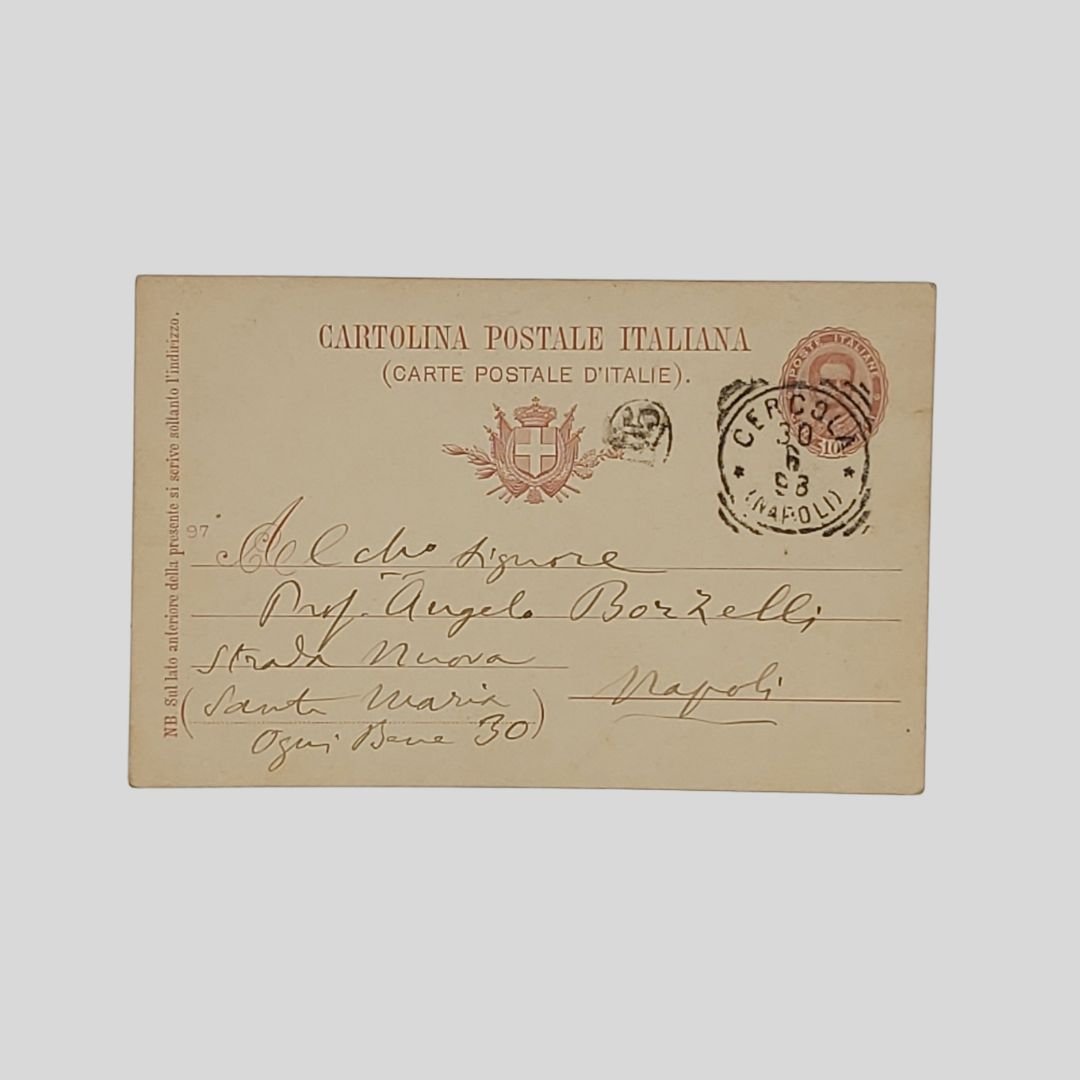 CARTOLINA POSTALE ITALIANA
(CARTE POSTALE D'ITALIE).
POSTE ITALIANE
10
CERCOLA
30
6
98
(NAPOLI)
15
97
NB. Sul lato anteriore della presente si scrive soltanto l'indirizzo.
Al cho Signore
Prof. Angelo Bozzelli
Strada Nuova
Napoli
(Santa Maria
Ogni Bene 30)